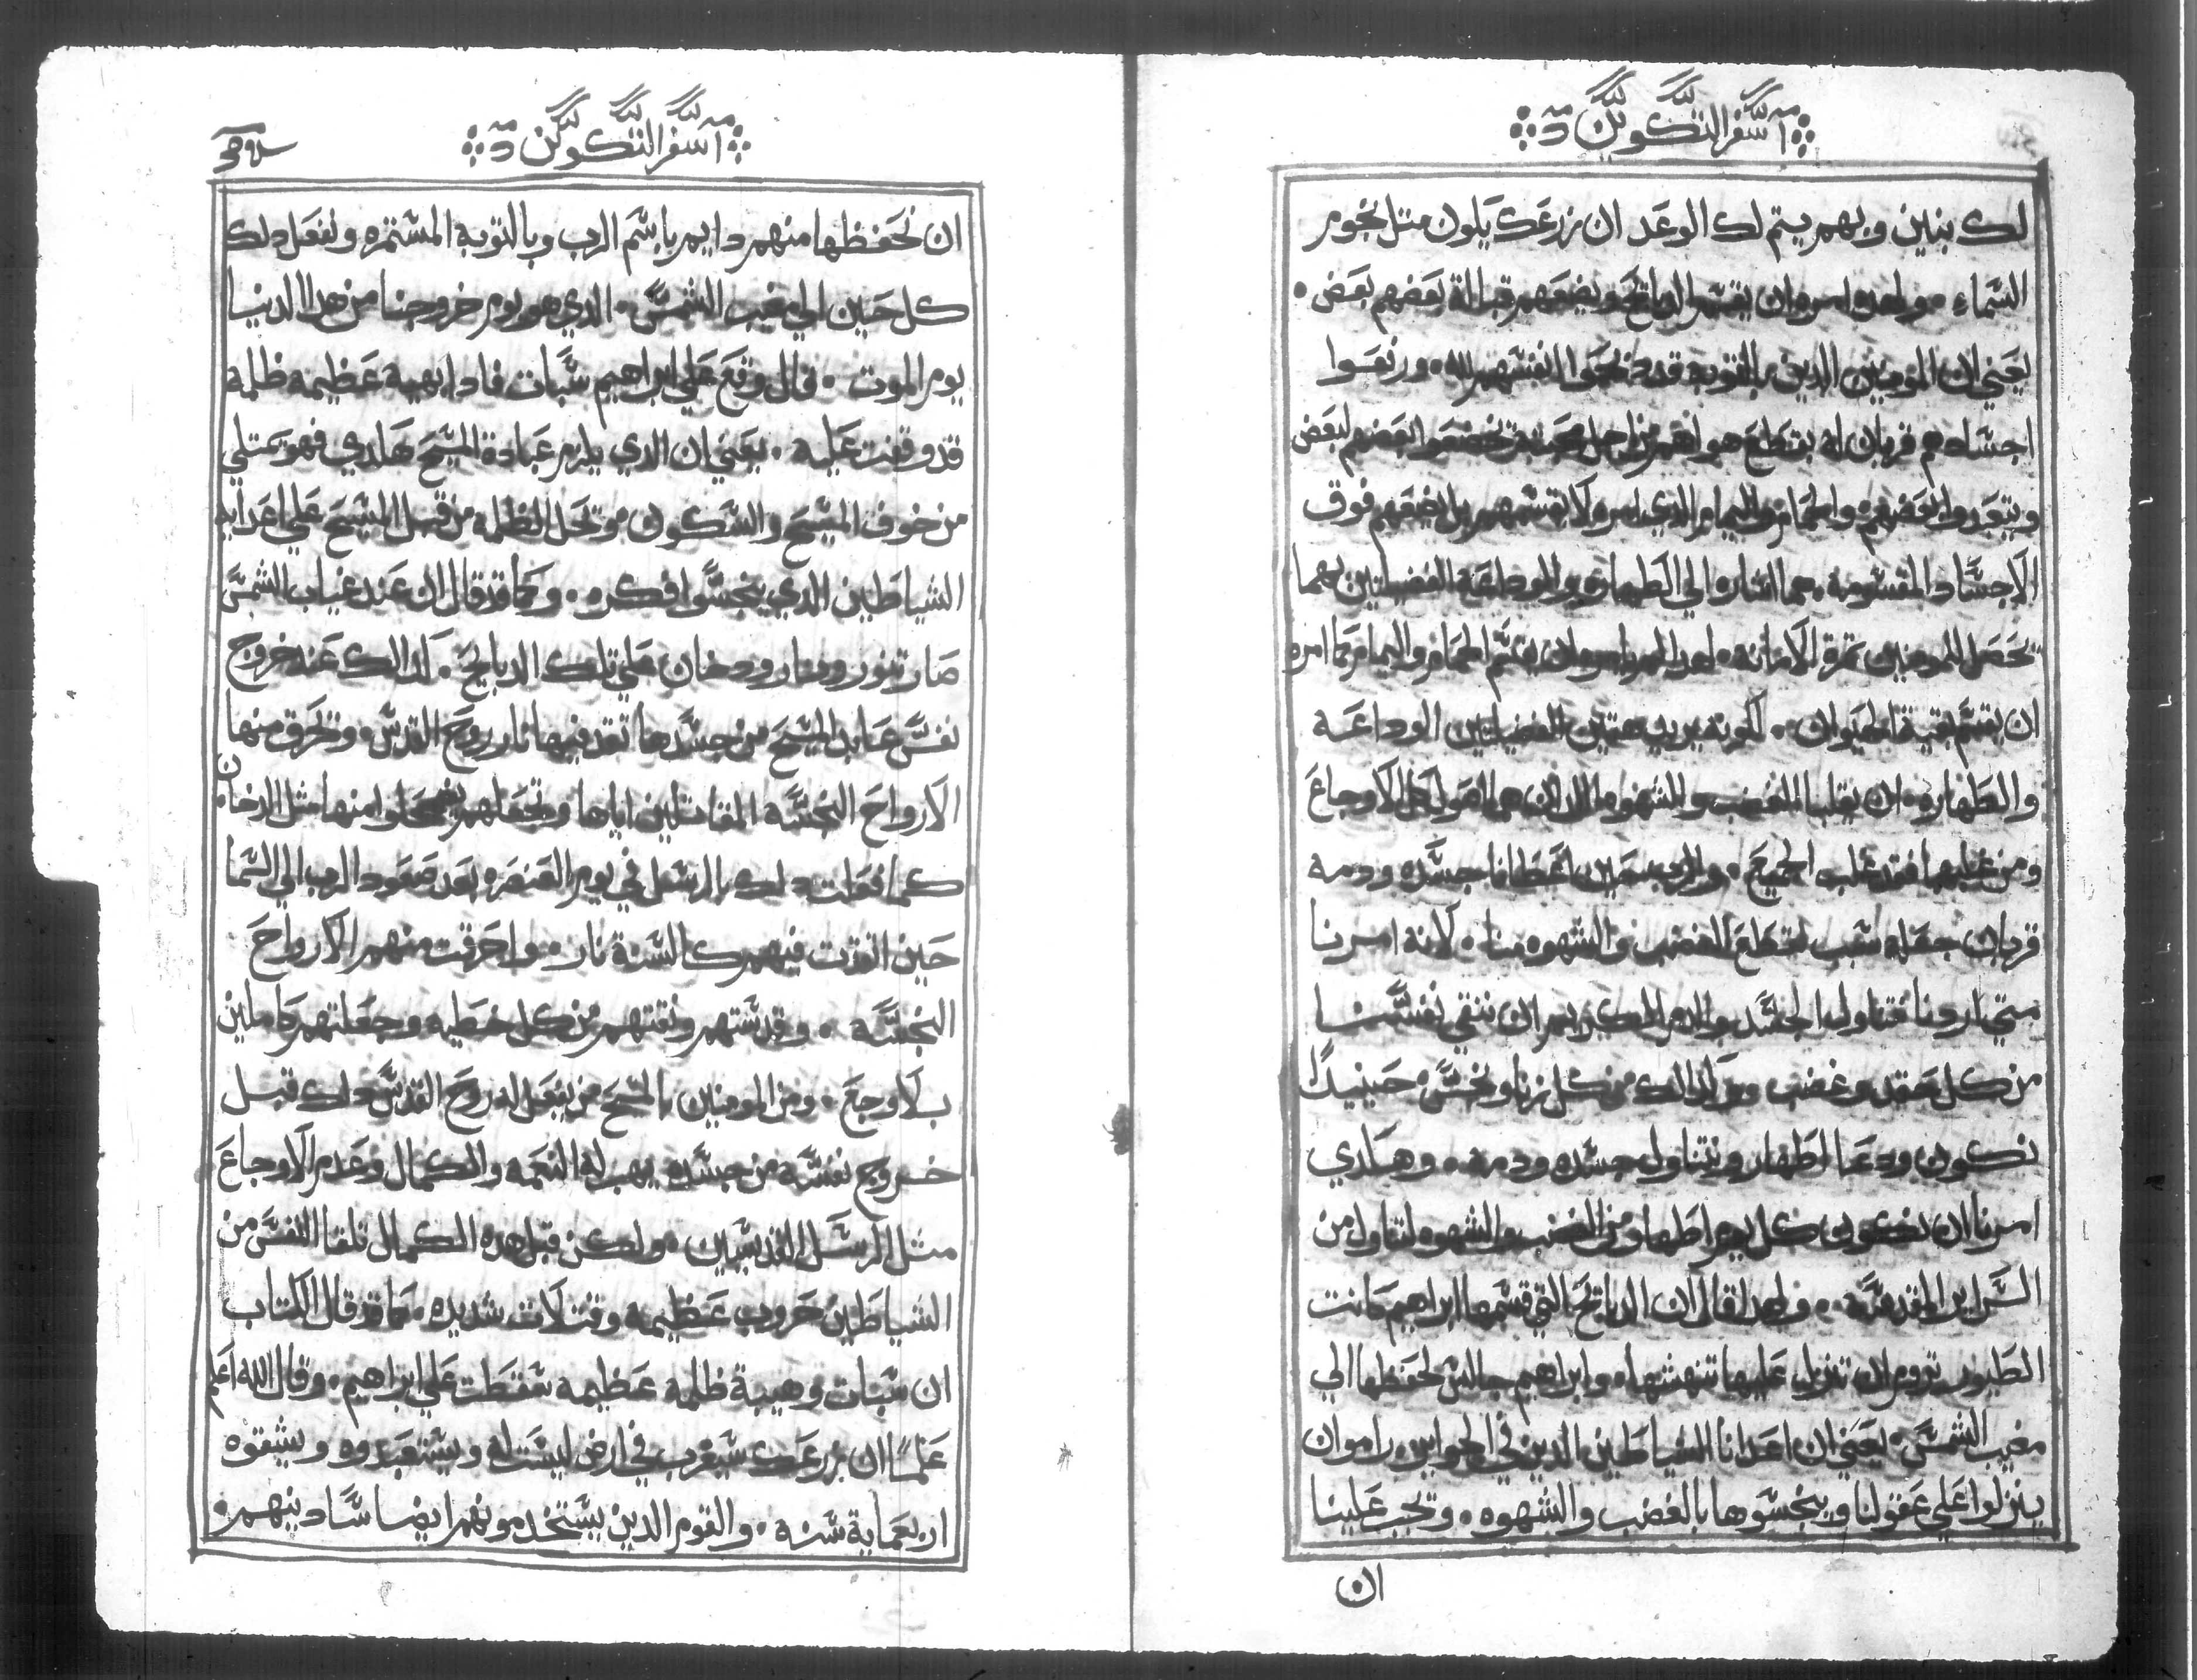 سفر التكوين
لك بنين وبهم يتم لك الوعد ان زرعك يكون متل نجوم
السماء ولهدا امره ان يقسم الدبايح ويضعهم قبالة بعضهم بعض
يعني ان المومنين الدين بالتوبه قد دبحوا انفسهم لله ورفعوا
اجسادهم قربان له بقطع هواهم من اجل محبته تخضعوا بعضهم لبعض
ويتعبدوا لبعضهم والحمام واليمام الدي امره لا يقسمهم بل يضعهم فوق
الاجساد المقسومه هما اشاره الي الطهاره والوداعة الفضيلتين بهما
تحصل للمومنين تمرة الامانه لهدا لم يامره ان يقسم الحمام واليمام كما امره
ان يقسم بقية الحيوان لكونه يريد هتين الفضيلتين الوداعه
والطهاره ان يغلبا الغضب والشهوه الدان هما اصول كل الاوجاع
ومن غلبهما فقد غلب الجميع والرب اعطانا جسده ودمه
قربان جعله سبب لقطع الغضب والشهوه منا لانه امرنا
متي اردنا نتناول الجسد والدم الكريم ان ننقي نفسنا
من كل حقد وغضب وكدالك من كل زنا ونجس حينيدًا
نكون ودعا اطهار ونتناول جسده ودمه وهكدي
امرنا ان نكون كل يوم اطهار من الغضب والشهوه لنتناول من
السراير المقدسه ولهدا قال ان الدبايح التي قسمها ابراهيم كانت
الطيور تروم ان تنزل عليها تنهشها وابراهيم جالس لحفظها الي
مغيب الشمس يعني ان اعدانا الشياطين الدين في الجو اين راموا ان
ينزلوا علي عقولنا وينجسوها بالغضب والشهوه وتجب علينا
ان
سفر التكوين
ان نحفظها منهم دايم باسم الرب وبالتوبه المستمره ونفعل دلك
كل حين الي مغيب الشمس الدي هو يوم خروجنا من هدا الدنيا
يوم الموت قال وقع علي ابراهيم سبات فادا بهيبة عظيمه ظلمه
قد وقفت عليه يعني ان الدي يلزم عبادة المسيح هكدي فهو يمتلي
من خوف المسيح والسكون وتحل الظلمه من قبل المسيح علي اعدايه
الشياطين الدي ينجسوا فكره وكما قد قال ان عند غياب الشمس
صار تنور ونار ودخان علي تلك الدبايح كدالك عند خروج
نفس عابد المسيح من جسدها تقد فيها نار روح القدس وتحرق منها
الارواح النجسه المقاتلين اياها وتجعلهم يضمحلوا منها مثل الدخان
كما فعلت دلك بالرسل في يوم العنصره بعد صعود الرب الي السما
حين اتقدت فيهم كالسنة نار واحرقت منهم الارواح
النجسه وقدستهم ونقتهم من كل خطيه وجعلتهم كاملين
بلا وجع ومن المومنين بالمسيح من يفعل له روح القدس دلك قبل
خروج نفسه من جسده يهب له النعمه والكمال وعدم الاوجاع
مثل الرسل القديسين ولكن قبل هده الكمال تلقا النفس من
الشياطين حروب عظيمه وقتلات شديده كما قد قال الكتاب
ان سبات وهيبة ظلمه عظيمه سقطت علي ابراهيم وقال الله اعلم
علمًا ان زرعك سيغرب في ارض ليست له ويستعبدوه ويشقوه
اربعماية سنه والقوم الدين يستخدمونهم ايضا سادينهم